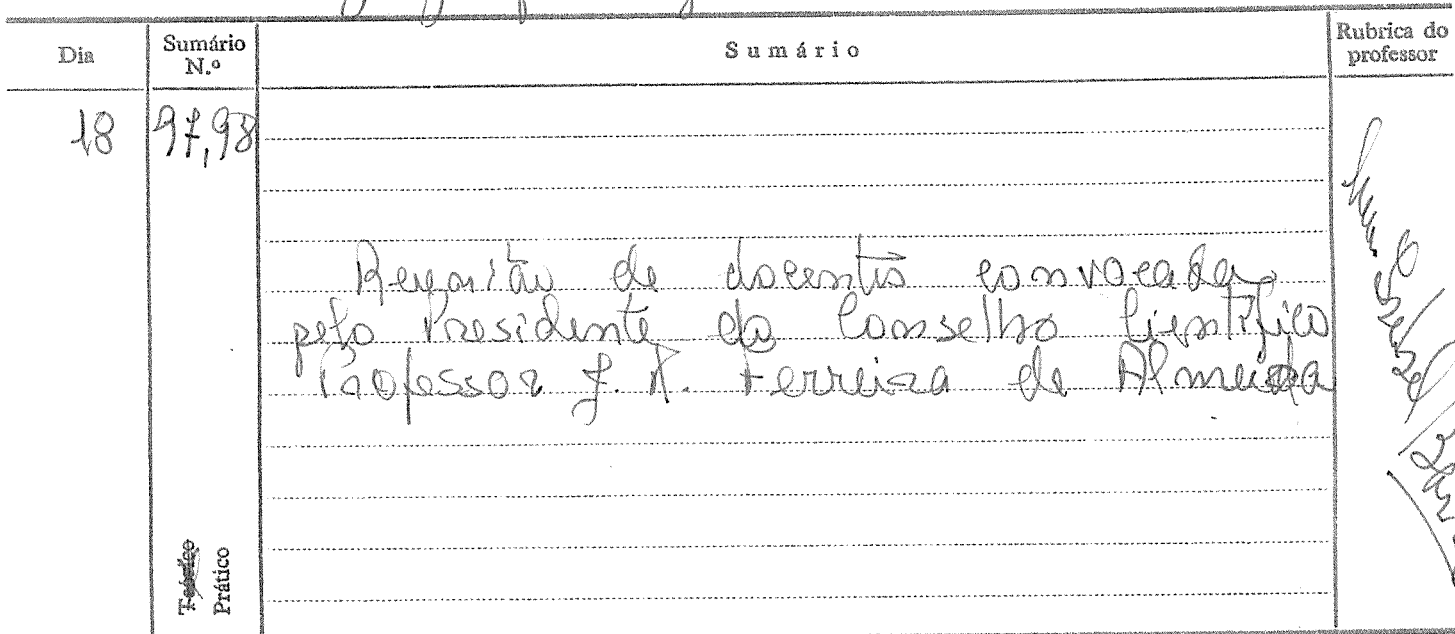 Dia
Sumário
N.º
Sumário
Rubrica do
professor
18
97,98
Reunião de docentes convocada
pelo Presidente do Conselho Científico
Professor J. R. Ferreira de Almeida
Teórico
Prático